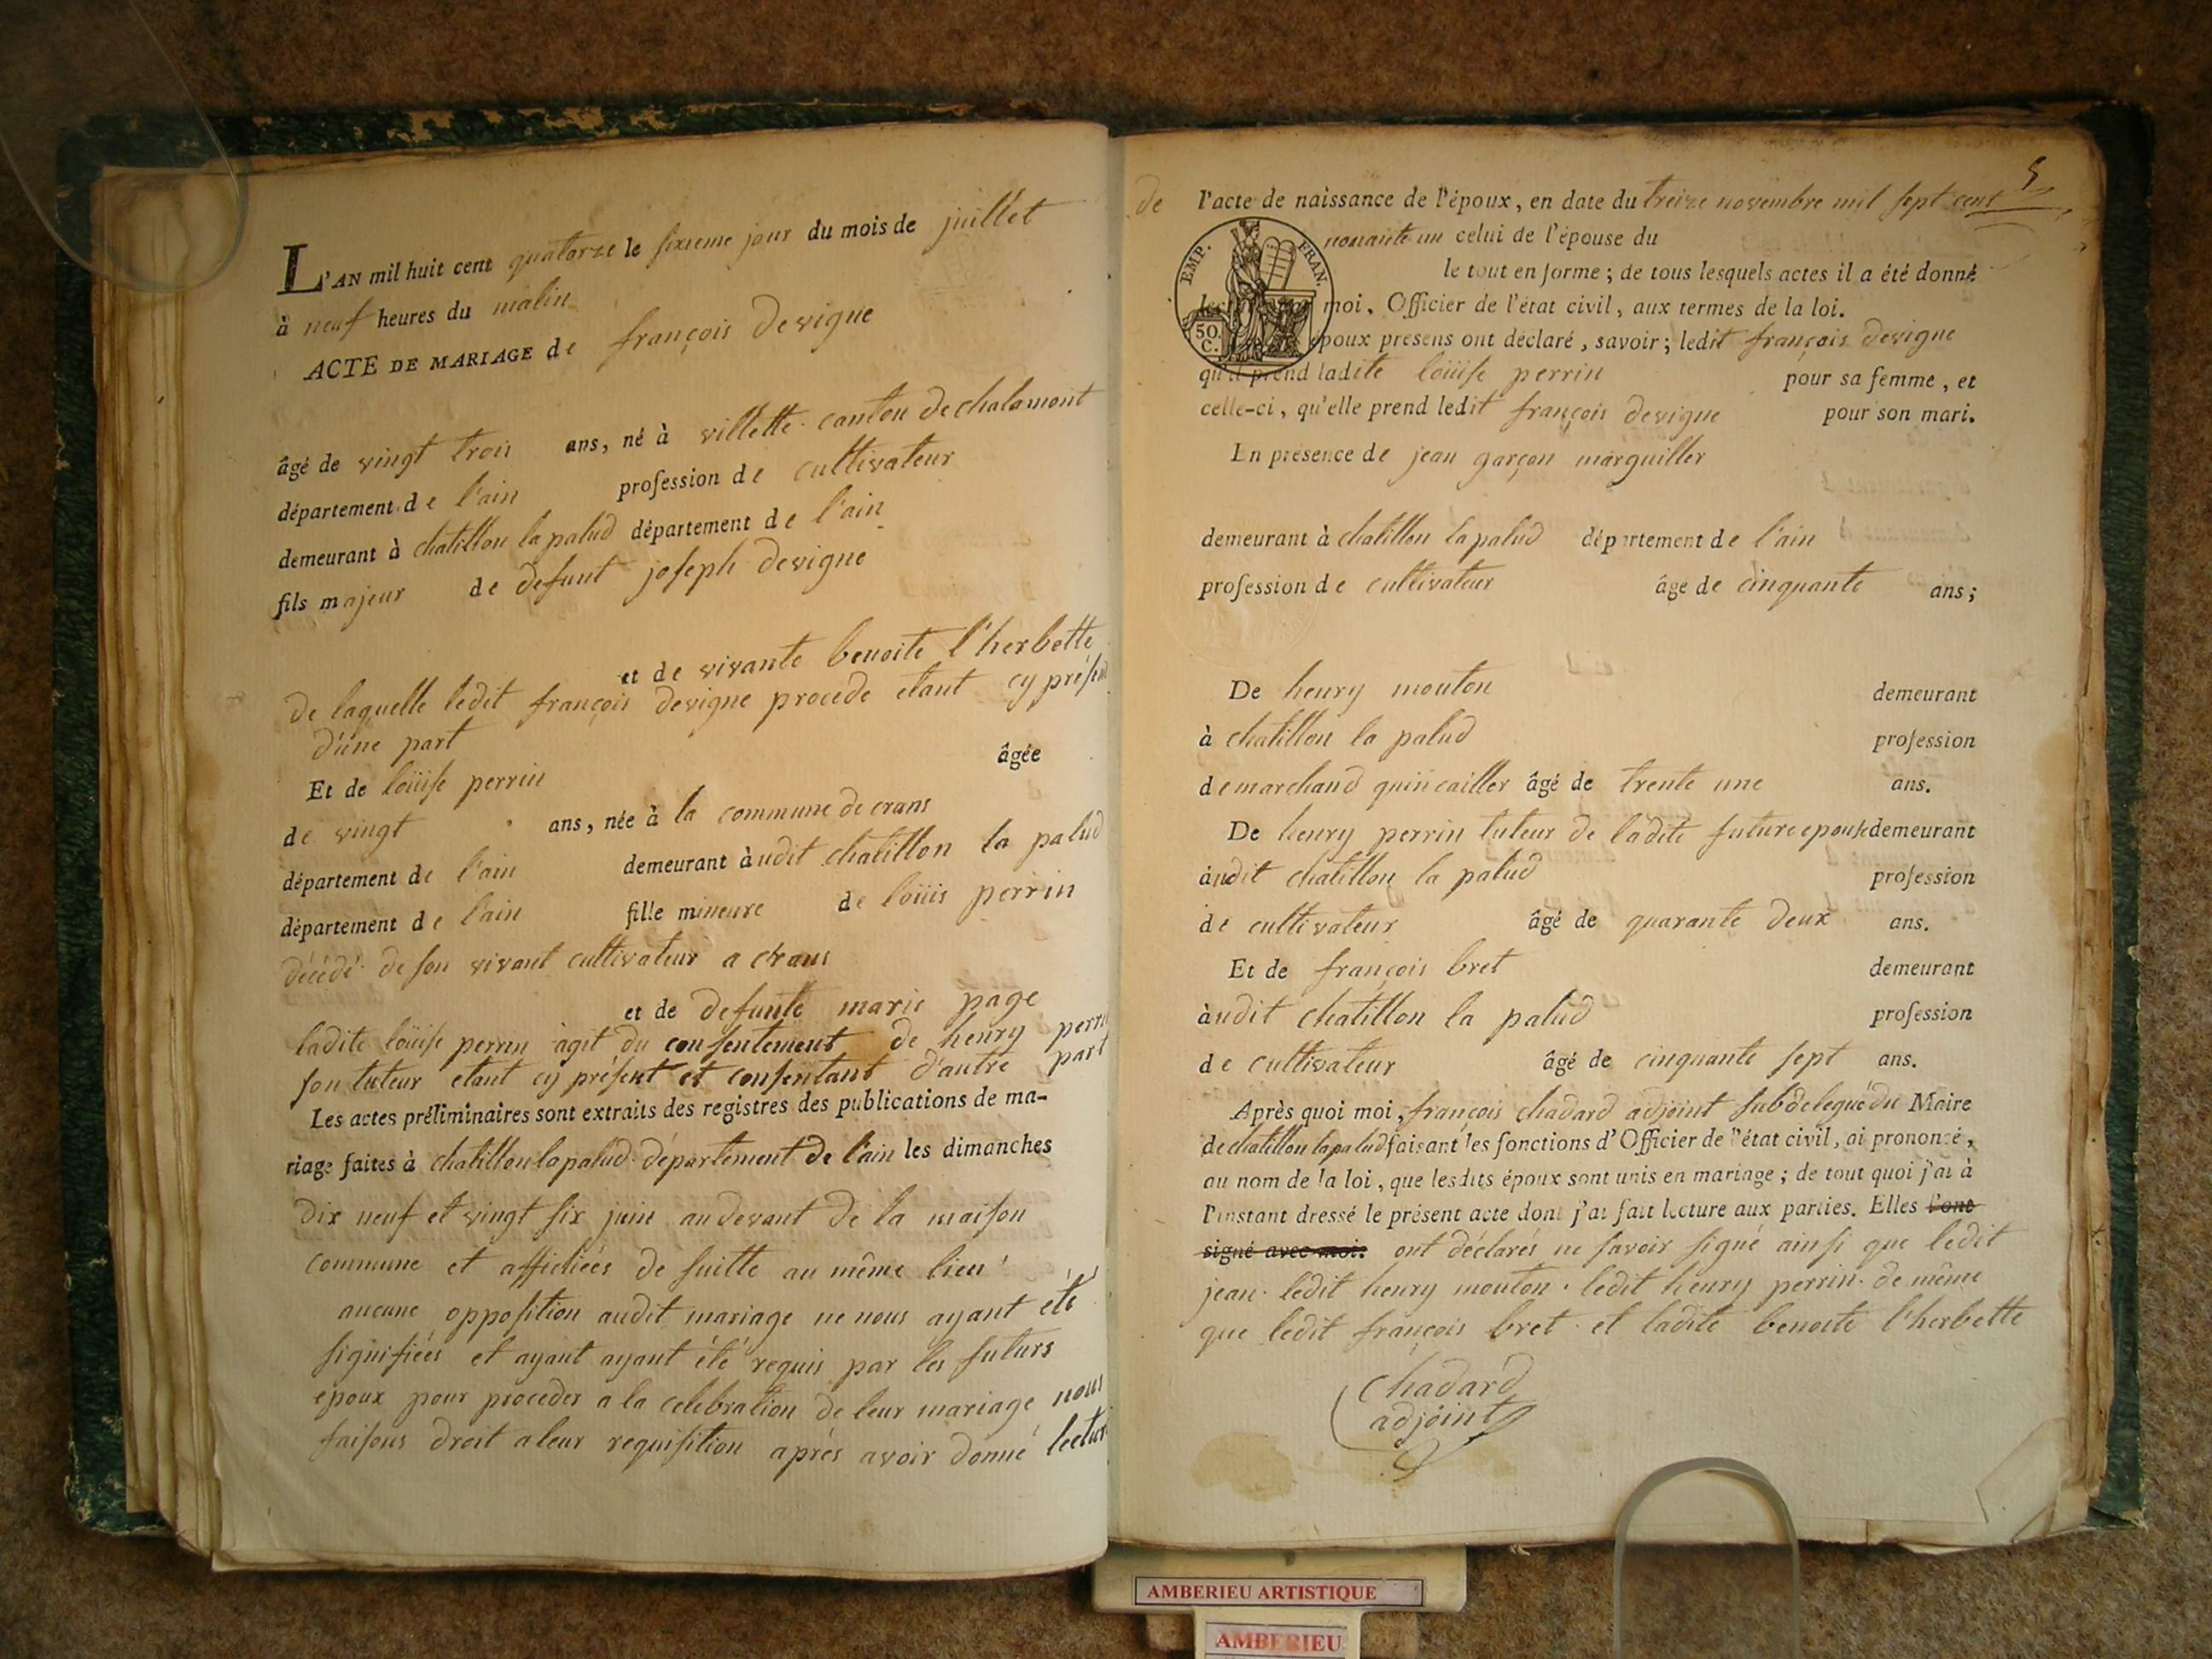 L'AN mil huit cent quatorze le sixieme jour du mois de juillet
à neuf heures du matin
ACTE DE MARIAGE de françois devigne
âgé de vingt trois ans, né à villette canton de chalamont
département de l'ain profession de cultivateur
demeurant à chatillon la palud département de l'ain
fils majeur de defunt joseph devigne
et de vivante benoite l'herbette
de laquelle ledit françois devigne procede etant cy présent
d'une part
Et de loüise perrin âgée
de vingt ans, née à la commune de crans
département de l'ain demeurant àudit chatillon la palud
département de l'ain fille mineure de loüis perrin
décédé de son vivant cultivateur a crans
et de defunte marie page
ladite loüise perrin agit du consentement de henry perrin
son tuteur etant cy présent et consentant d'autre part
Les actes préliminaires sont extraits des registres des publications de ma-
riage faites à chatillon la palud département de l'ain les dimanches
dix neuf et vingt six juin au devant de la maison
commune et affichées de suitte au même lieu
aucune opposition audit mariage ne nous ayant été
signifiées et ayant ayant été requis par les futurs
epoux pour proceder a la celebration de leur mariage nous
faisons droit a leur requisition après avoir donné lecture
5
de l'acte de naissance de l'époux, en date du treize novembre mil sept cent
nonante un celui de l'épouse du
EMP. FRAN.
le tout en forme ; de tous lesquels actes il a été donné
moi, Officier de l'état civil, aux termes de la loi.
50 C.
époux presens ont déclaré, savoir ; ledit françois devigne
qu'il prend ladite loüise perrin pour sa femme, et
celle-ci, qu'elle prend ledit françois devigne pour son mari.
En presence de jean garçon marguiller
demeurant à chatillon la palud département de l'ain
profession de cultivateur âge de cinquante ans ;
De henry mouton demeurant
à chatillon la palud profession
de marchand quincailler âgé de trente une ans.
De henry perrin tuteur de ladite future epouse demeurant
àudit chatillon la palud profession
de cultivateur âgé de quarante deux ans.
Et de françois bret demeurant
àudit chatillon la palud profession
de cultivateur âgé de cinquante sept ans.
Après quoi moi, françois chadard adjoint subdelegué du Maire
de chatillon la palud faisant les fonctions d'Officier de l'état civil, ai prononcé,
au nom de la loi, que lesdits époux sont unis en mariage ; de tout quoi j'ai à
l'instant dressé le présent acte dont j'ai fait lecture aux parties. Elles l'ont
signé avec moi. ont déclarés ne savoir signé ainsi que ledit
jean. ledit henry mouton. ledit henry perrin. de même
que ledit françois bret. et ladite benoite l'herbette
Chadard
adjoint
AMBERIEU ARTISTIQUE
AMBERIEU